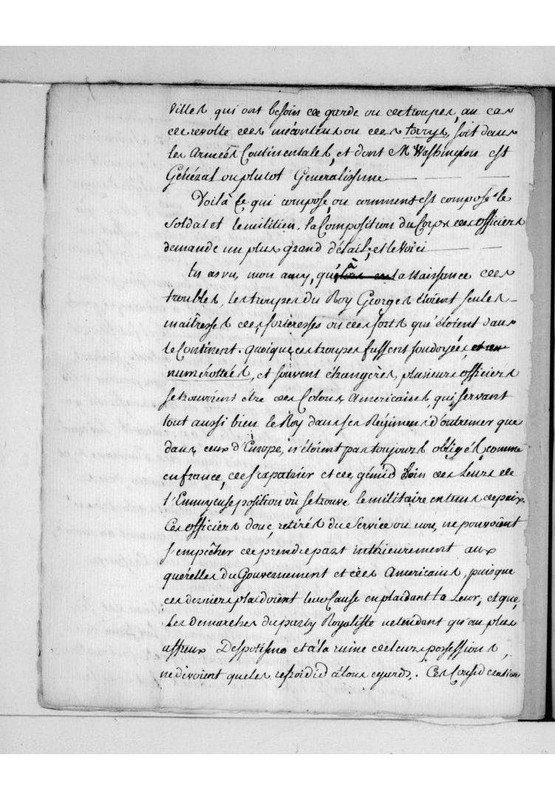 villes qui ont besoin de garde ou de troupes, au cas
de revolte des mecontens ou des torrys, soit dans
les Armées Continentales, et dont M. Washington est
Général ou plutot Generalissime
Voilà ce qui compose, ou comment est composé le
Soldat et le milicien. la Composition du Corps des officiers
demande un plus grand détail; et le voici
Tu as vu, mon amy, qu'à la naissance des
troubles, les troupes du Roy Georges étoient seules
maîtresses des forteresses ou des forts qui étoient dans
le Continent. quoique ces troupes fussent soudoyées,
et souvent étrangeres, plusieurs officiers
se trouvoient être des Colons Americains, qui servant
tout aussi bien le Roy dans ses Régimens d'outremer que
dans ceux d'Europe, n'étoient pas toujours obligés, comme
en france, de s'expatrier et de gémir loin des Leurs de
l'Ennuyeuse position où se trouve le militaire en tems de paix.
Ces officiers donc, retirés du Service ou non, ne pouvoient
s'empêcher de prendre part intérieurement aux
querelles du Gouvernement et des Americains, puisque
ces derniers plaidoient leur Cause en plaidant la Leur, et que
Les demarches du party Royaliste ne tendant qu'au plus
affreux Despotisme et à la ruine de leurs possessions,
ne devoient que les à tous egards. Ces Considerations